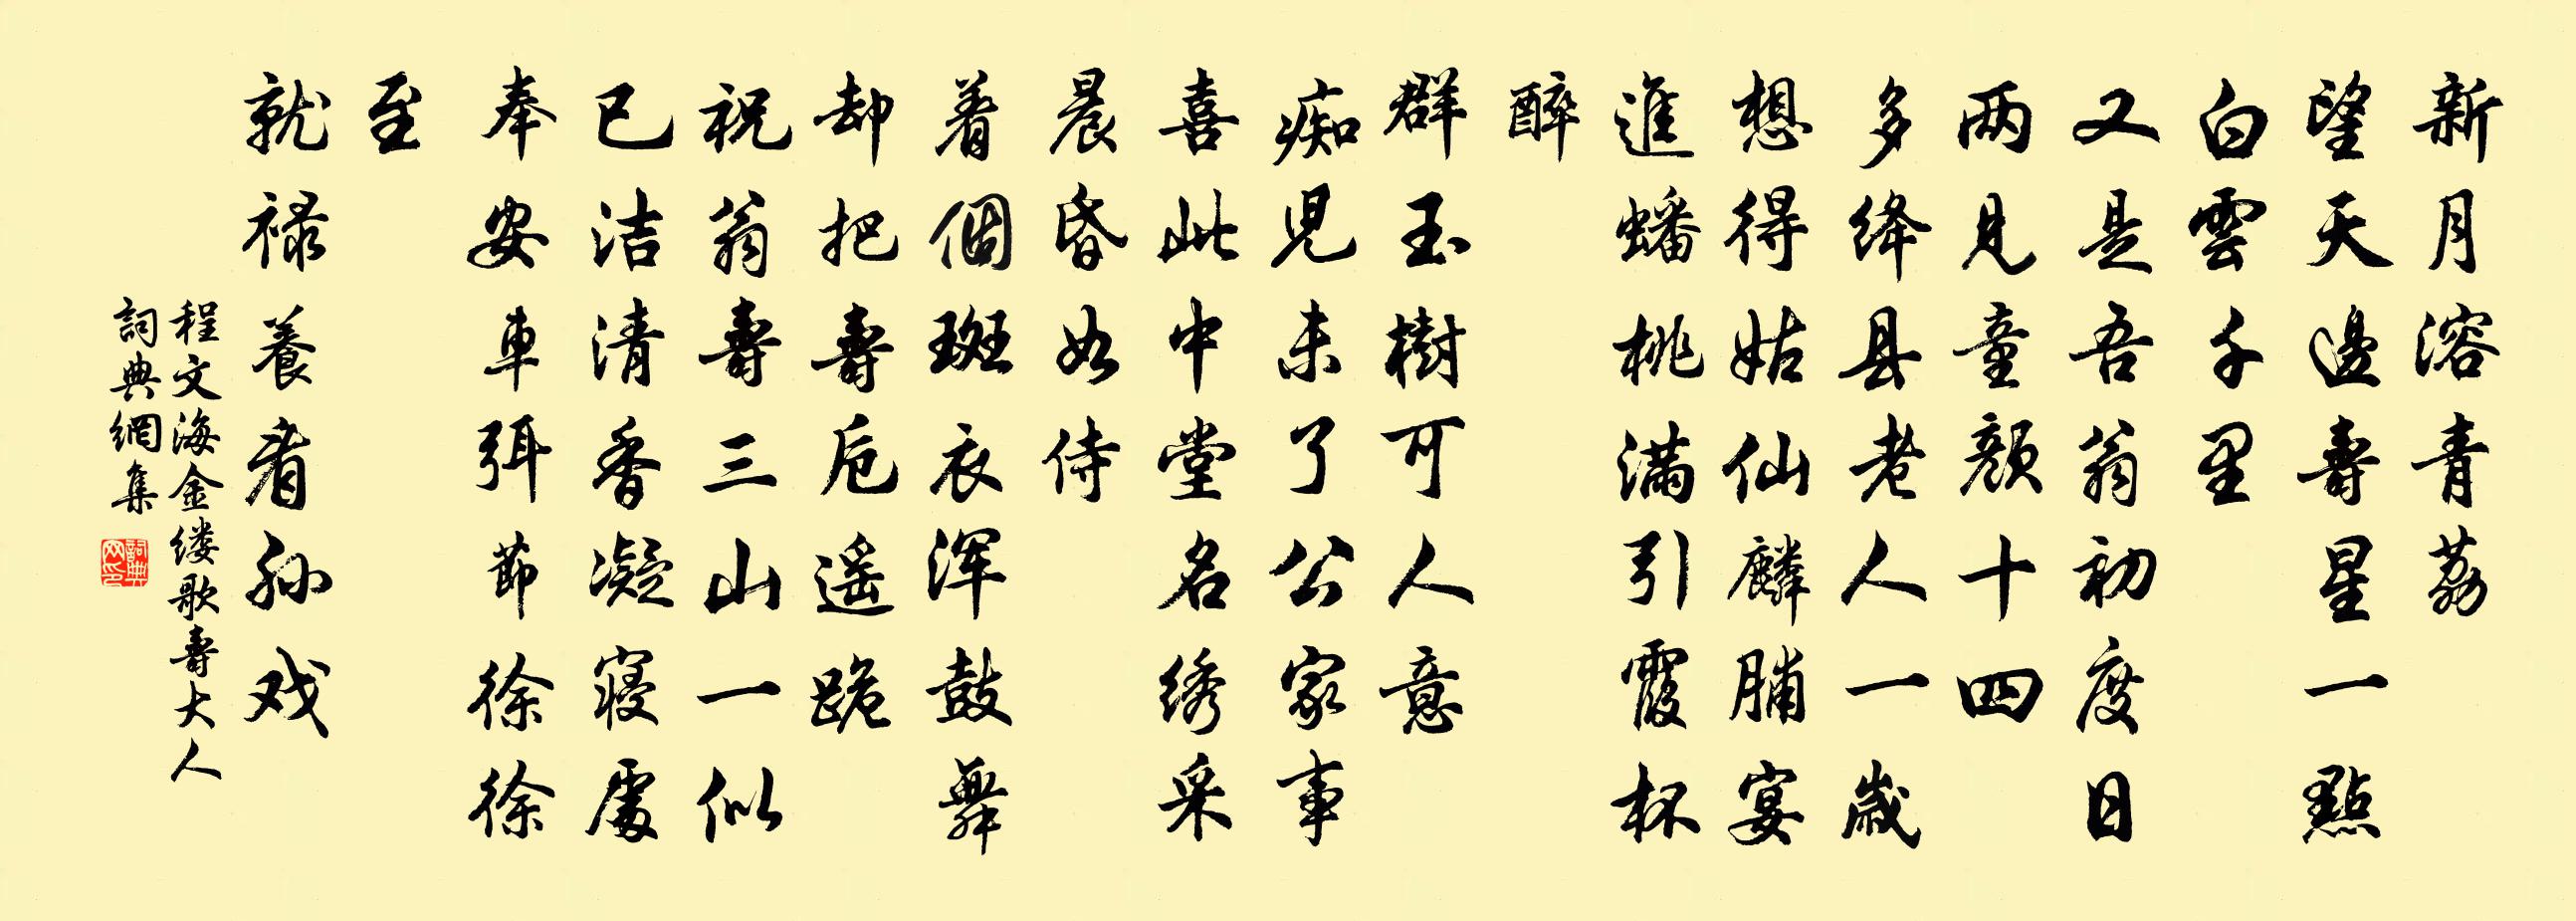 新月溶青荔
望天邊壽星一點
白雲千里
又是吾翁初度日
两見童顔十四
多绛县老人一歲
想得姑仙麟脯宴
進蟠桃满引霞杯
醉
群玉樹可人意
痴兒未了公家事
喜此中堂名绣采
晨昏如侍
着個斑衣浑鼓舞
却把壽卮遥跪
祝翁壽三山一似
已洁清香凝寝處
奉安車弭節徐徐
至
就禄養看孙戏
程文海金缕歌壽大人
詞典網集
詞典网印